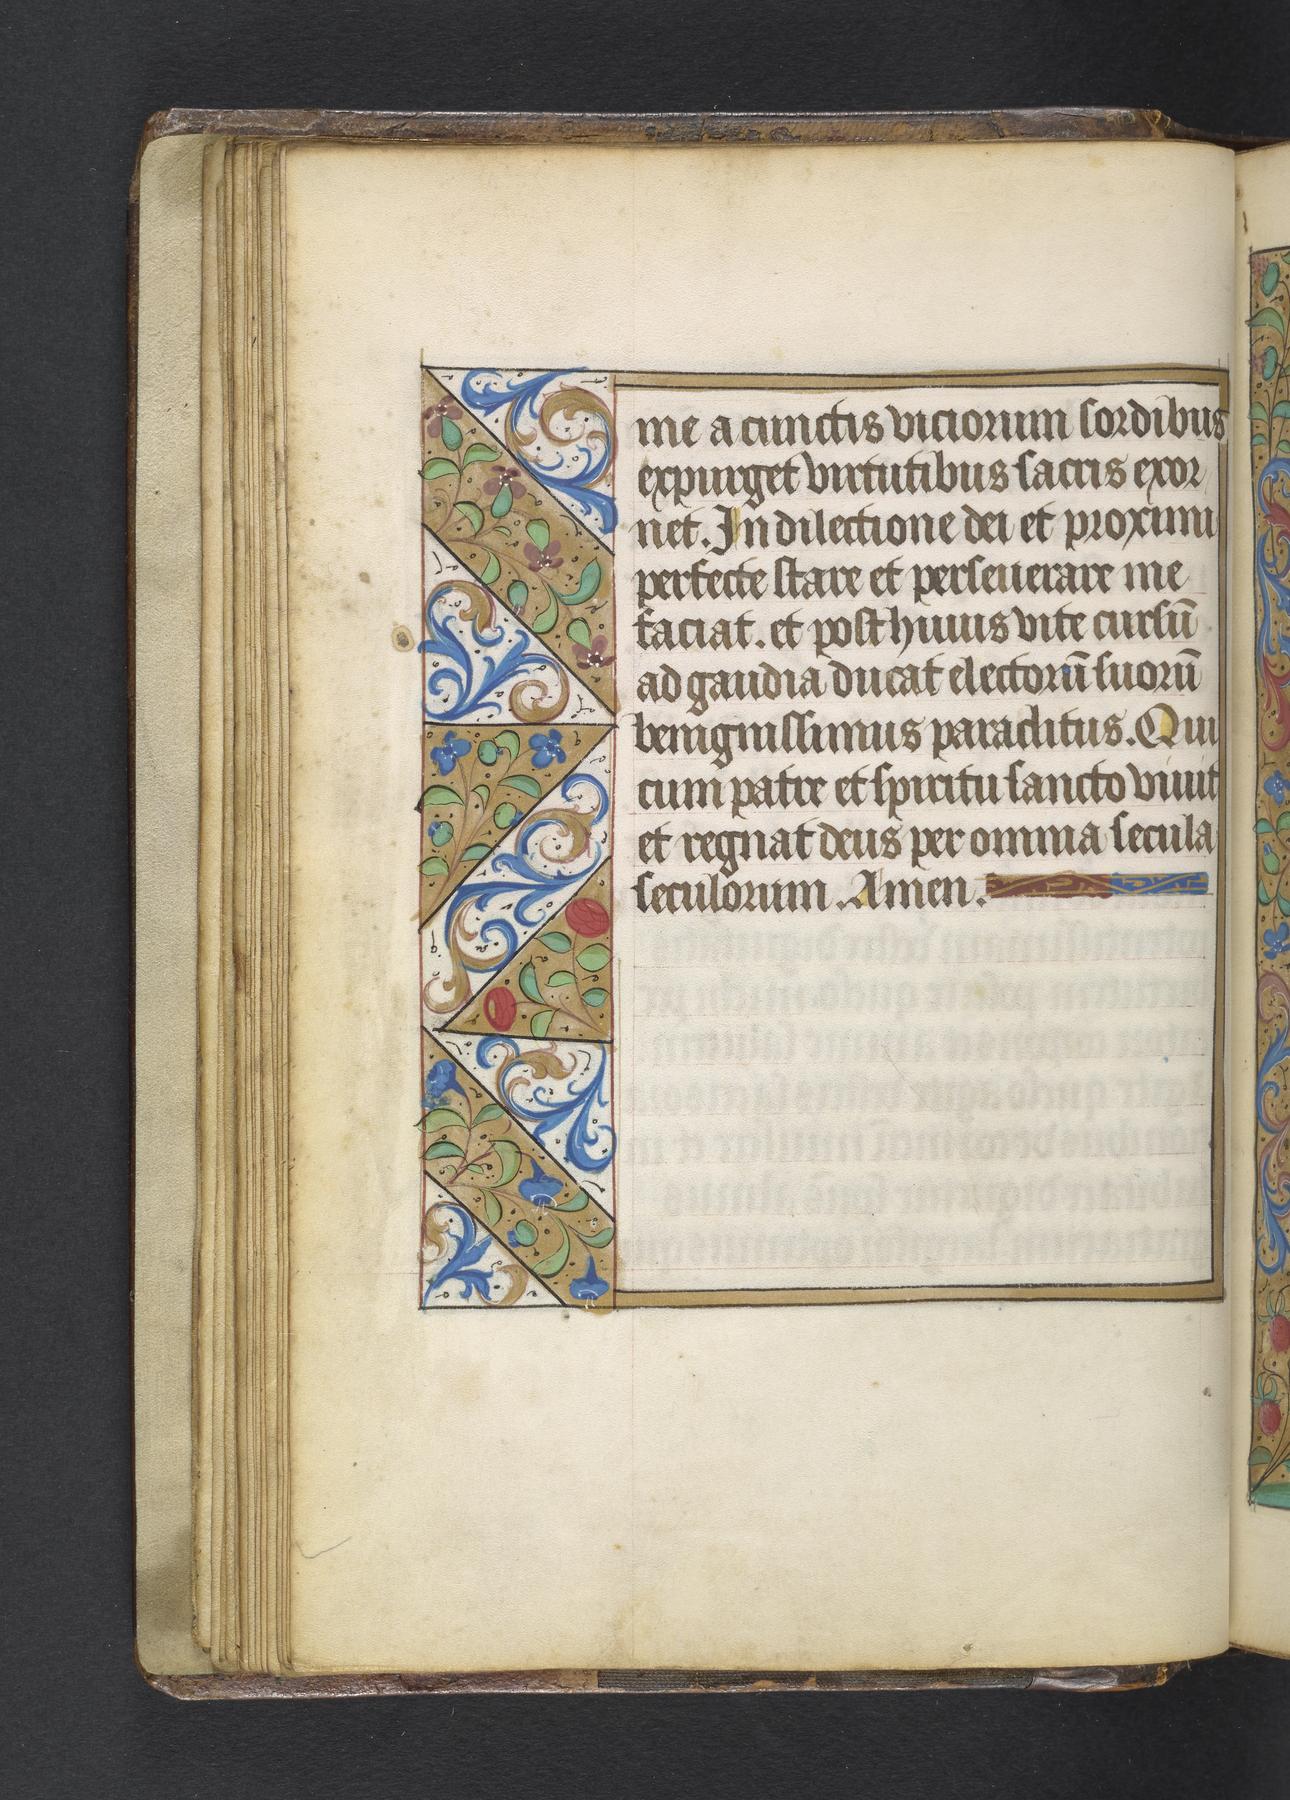 me a cunctis viciorum sordibus
expurget virtutibus sacris exor
net. In dilectione dei et proximi
perfecte stare et perseuerare me
faciat. et post huius vite cursū
ad gaudia ducat electorū suorū
benignissimus paraclitus. Qui
cum patre et spiritu sancto viuit
et regnat deus per omnia secula
seculorum. Amen.